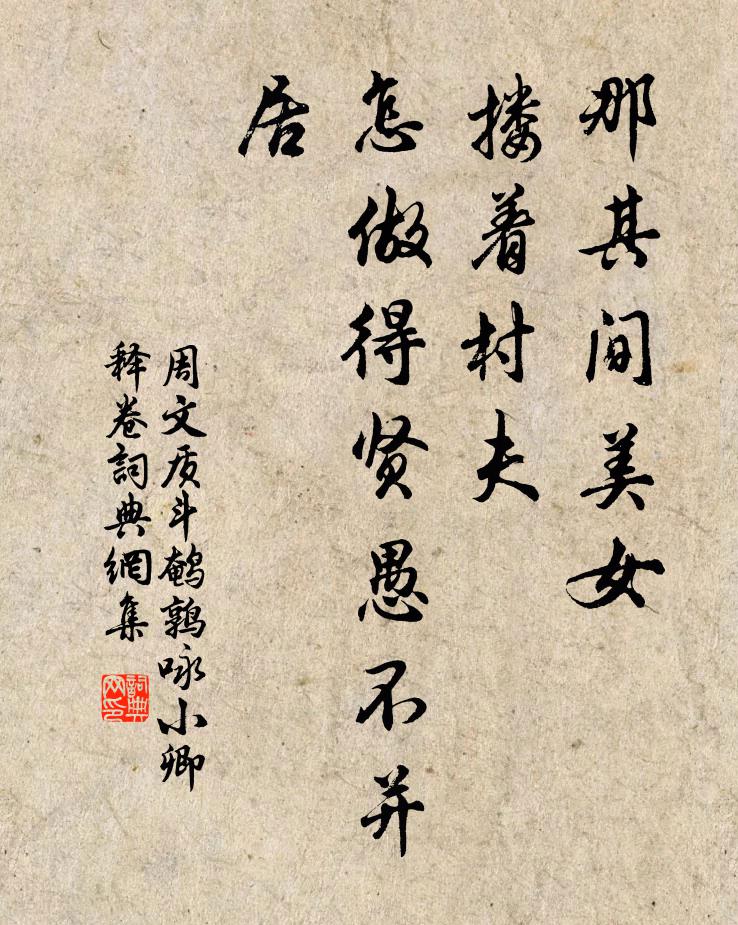 那其间美女
搂着村夫
怎做得贤愚不并
居
周文质斗鹌鹑咏小卿
释卷詞典網集
詞典
网印